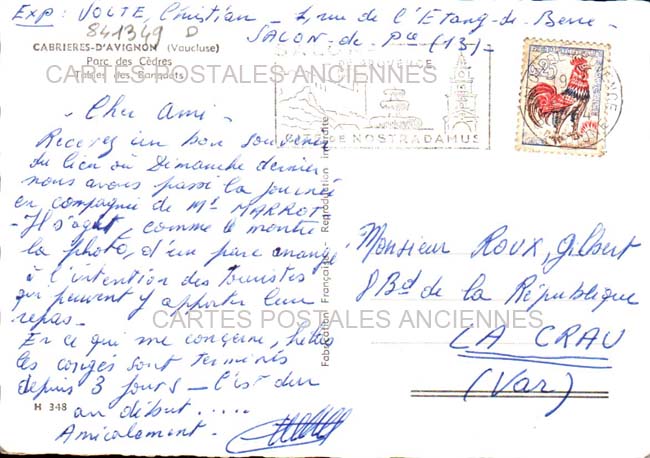 Exp: VOLTE, Christian - 2, rue de l'Etang-de-Berre -
SALON-de-Pce (13) -
841349 D
CABRIERES-D'AVIGNON (Vaucluse)
Parc des Cèdres
Tables des Banquets
CARTES POSTALES ANCIENNES
DE PROVENCE
CITE DE NOSTRADAMUS
0,25
Cher Ami -
Recevez un bon souvenir
du lieu où Dimanche dernier
nous avons passé la journée
en compagnie de Mr MARROT
- Il s'agit, comme le montre
la photo, d'un parc aménagé
à l'intention des touristes
qui peuvent y apporter leur
repas -
En ce qui me concerne, hélas
les congés sont terminés
depuis 3 jours - C'est dur
au début .....
Amicalement -
H 348
Fabrication Française - Reproduction interdite
Monsieur ROUX, Gilbert
8 Bd de la République
CARTES POSTALES ANCIENNES
LA CRAU
(Var)